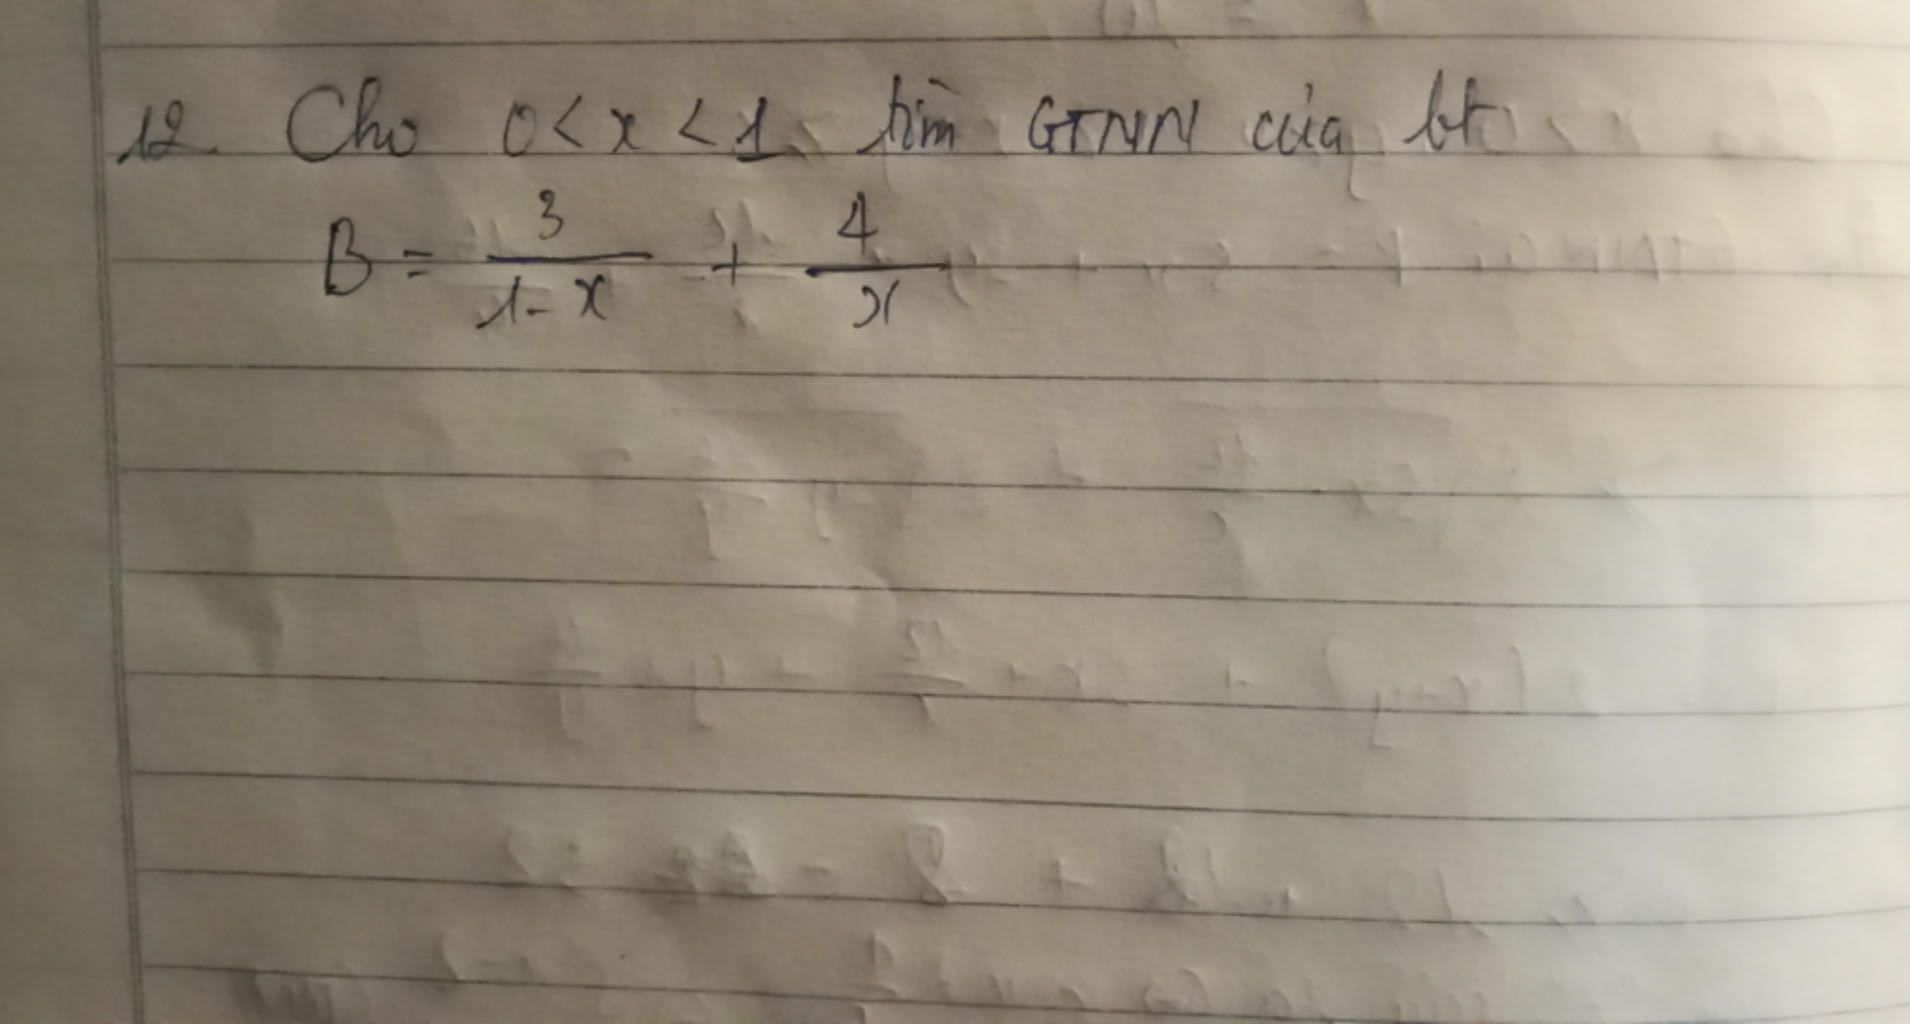 12. Cho 0 < x < 1 tìm GTNN của bt
B = 3/(1-x) + 4/x